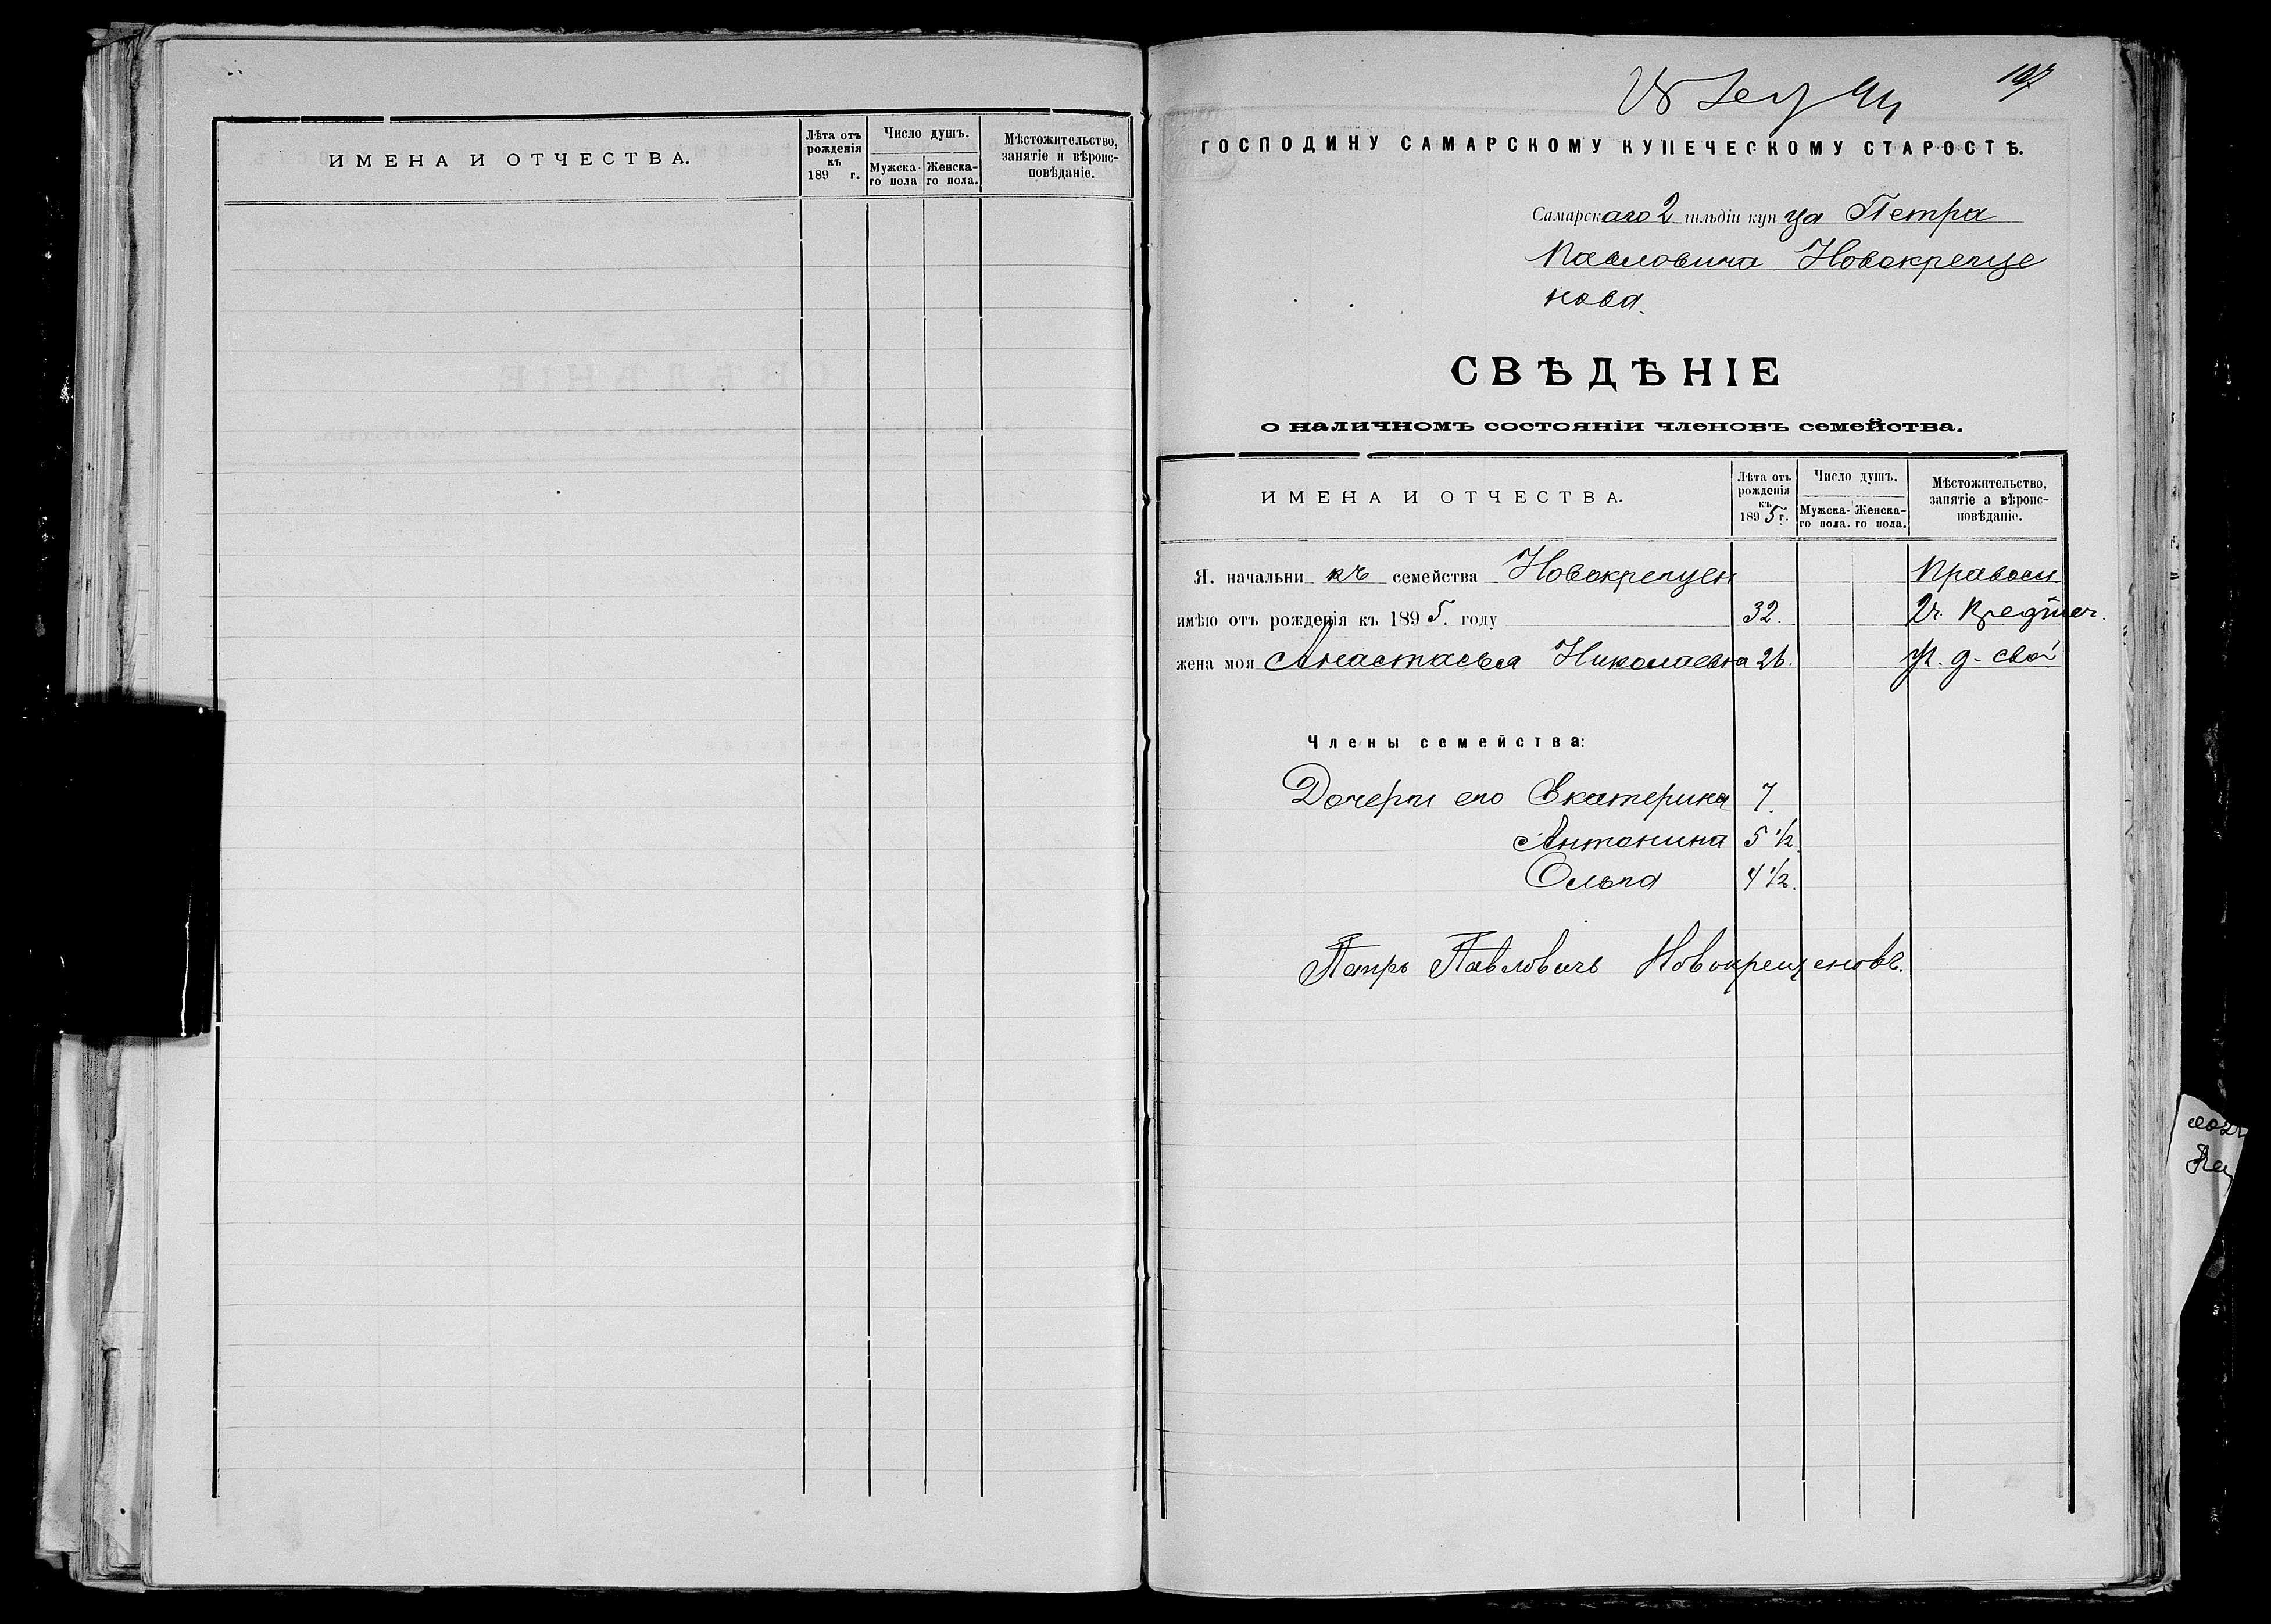 ИМЕНА И ОТЧЕСТВА.
Лѣта отъ рожденія къ 189 г.
Число душъ.
Мужска-го пола
Женска-го пола.
Мѣстожительство, занятіе и вѣроис-повѣданіе.
197
ГОСПОДИНУ САМАРСКОМУ КУПЕЧЕСКОМУ СТАРОСТѢ.
Самарскаго 2 гильдіи купца Петра
Павловича Новокреще
нова.
СВѢДѢНІЕ
о наличномъ состояніи членовъ семейства.
ИМЕНА И ОТЧЕСТВА.
Лѣта отъ рожденія къ 1895 г.
Число душъ.
Мужска-го пола.
Женска-го пола.
Мѣстожительство, занятіе а вѣроис-повѣданіе.
Я. начальникъ семейства Новокрещен Правосл
имѣю отъ рожденія къ 1895. году 32. 2ч.
жена моя Анастасья Николаевна 26. ул. д. свой
Члены семейства:
Дочери его Екатерина 7.
Антонина 5 1/2.
Ольга 4 1/2.
Петръ Павловичъ Новокрещеновъ.